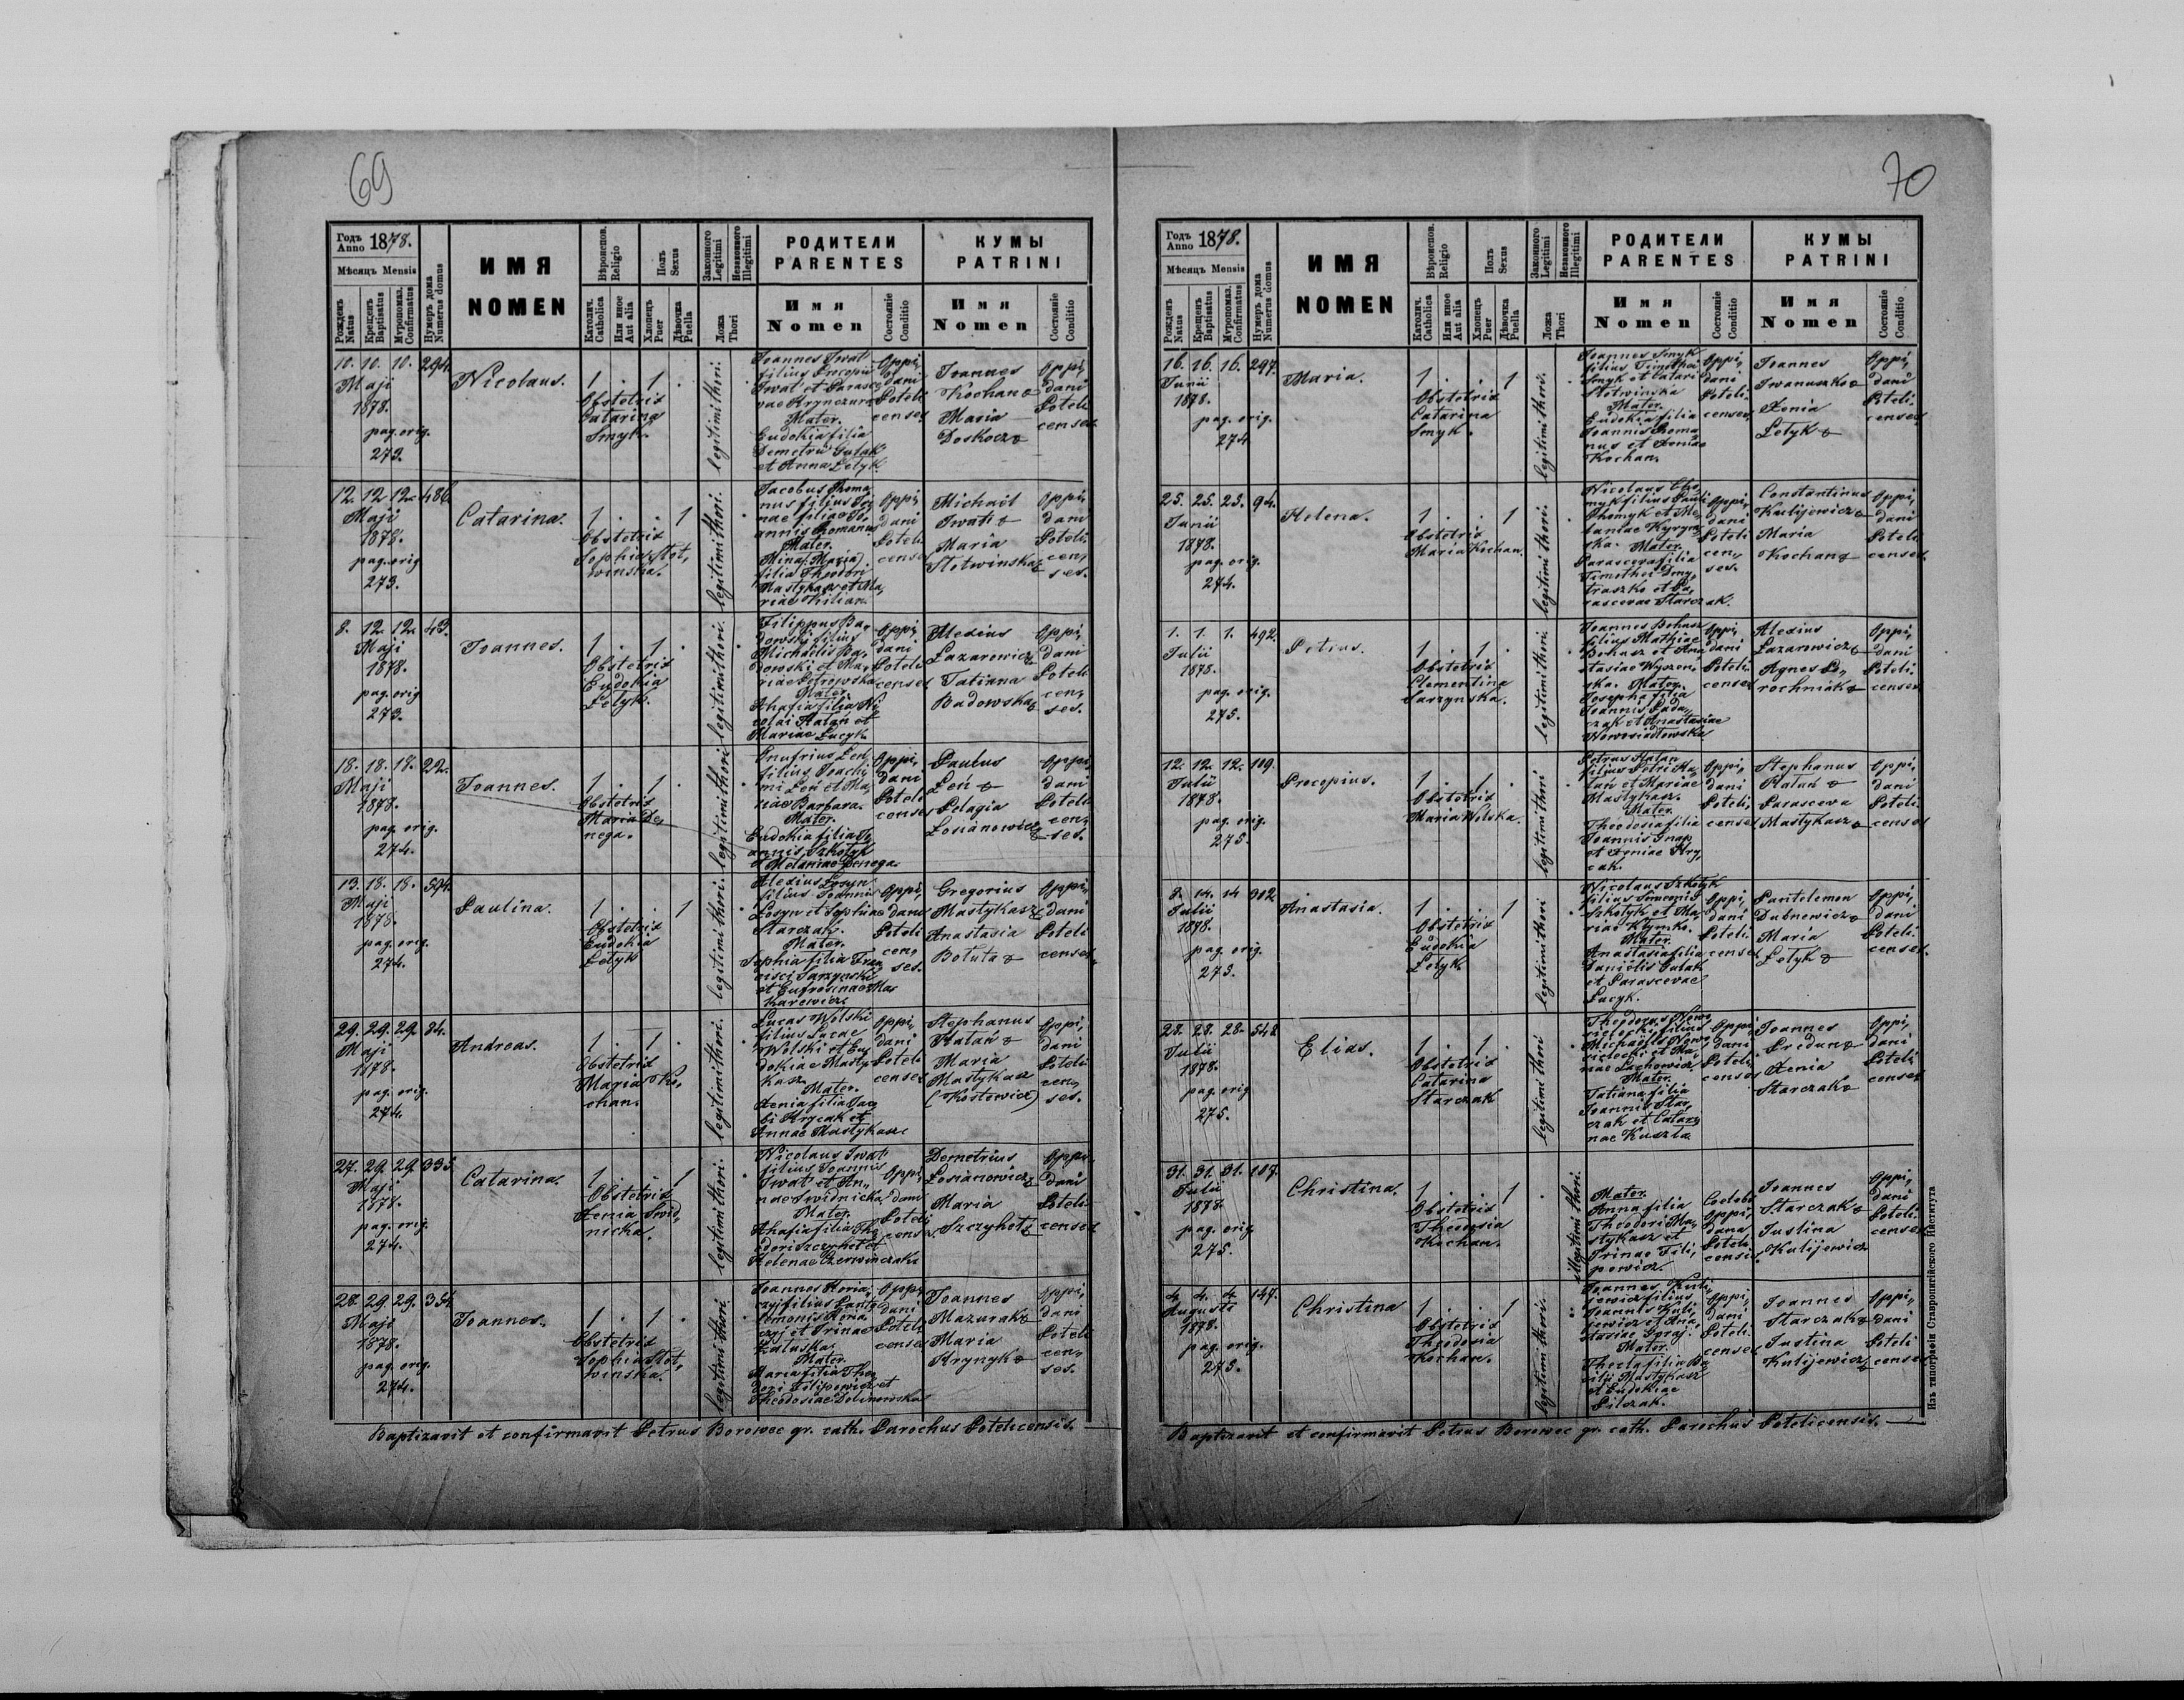 69
Годъ Anno 1878.
Мѣсяцъ Mensis
Рожденъ Natus
Крещенъ Baptisatus
Мѵропомаз. Confirmatus
Нумеръ дома Numerus domus
ИМЯ
NOMEN
Вѣроисповѣд. Religio
Католич. Catholica
Или иное Aut alia
Полъ Sexus
Хлопецъ Puer
Дѣвочка Puella
Законного Legitimi
Незаконного Illegitimi
Ложа Thori
РОДИТЕЛИ
PARENTES
Имя
Nomen
Состояніе Conditio
КУМЫ
PATRINI
Имя
Nomen
Состояніе Conditio
10. 10. 10. 294.
Maji
1878.
pag. orig.
273.
Nicolaus.
1 . 1 .
Obstetrix
Catarina
Smyk.
legitimi thori.
Joannes Iwat
filius Procopii
Iwat et Parasce
vae Krynczura
Mater.
Eudokia filia
Demetrii Gulak
et Anna Letyk.
Oppi,
dani
Poteli
censes
Joannes
Kochan &
Maria
Doskocz &
Oppi,
dani
Poteli
censes
12. 12. 12. 486.
Maji
1878.
pag. orig
273.
Catarina.
1 . . 1
Obstetrix
Sophia Stot,
winska.
legitimi thori.
Jacobus Roma
nus filius Iri
nae filiae Jo,
annis Romanus
Mater.
Mina Maria
filia Theodori
Mastykasz et Ma,
riae Kilian.
Oppi,
dani
Poteli
censes
Michael
Iwat &
Maria
Stotwinska &
Oppi,
dani
Poteli
cen,
ses.
8. 12. 12. 43.
Maji
1878.
pag. orig
273.
Joannes.
1 . 1 .
Obstetrix
Eudokia
Letyk.
legitimi thori.
Filippus Ba,
dowski filius
Michaelis Ba,
dowski et Ma,
riae Petrowska
Mater.
Ahafia filia Ni
colai Hatan et
Mariae Lucyk.
Oppi,
dani
Poteli
censes
Alexius
Lazarowicz &
Tatiana
Badowska &
Oppi,
dani
Poteli
cen,
ses.
18. 18. 18. 22.
Maji
1878.
pag. orig.
274.
Joannes.
1 . 1 .
Obstetrix
Maria De,
nega.
legitimi thori.
Onufrius Leń
filius Joachi
mi Leń et Ma,
riae Barbara.
Mater.
Eudokia filia Jo
annis Szkotyk
et Melaniae Denega.
Oppi,
dani
Poteli
censes
Paulus
Leń &
Pelagia
Losianowicz &
Oppi,
dani
Poteli
cen,
ses.
13. 18. 18. 594.
Maji
1878.
pag. orig.
274.
Paulina.
1 . . 1
Obstetrix
Eudokia
Letyk
legitimi thori.
Alexius Losyn
filius Joannis
Losyn et Sophiae
Starczak.
Mater.
Sophia filia Fran
cisci Sarzynski
et Eufrosinae Ma,
karewicz.
Oppi,
dani
Poteli
cen,
ses.
Gregorius
Mastykasz &
Anastasia
Botuta &
Oppi,
dani
Poteli
censes.
29. 29. 29. 34.
Maji
1878.
pag. orig.
274.
Andreas.
1 . 1 .
Obstetrix
Maria Ko,
chan.
legitimi thori.
Lucas Wolski
filius Lucae
Wolski et Eu,
dokiae Masty
kasz.
Mater.
Xenia filia Jaco
bi Hrycak et
Annae Mastykasz
Oppi,
dani
Poteli
censes
Stephanus
Hatań &
Maria
Mastykasz
(Kostewicz)
Oppi,
dani
Poteli
cen,
ses.
27. 29. 29. 335.
Maji
1878.
pag. orig
274.
Catarina.
1 . . 1
Obstetrix
Xenia Swid,
nicka.
legitimi thori.
Nicolaus Iwat
filius Joannis
Iwat et An,
nae Swidnicka.
Mater.
Ahafia filia The
odori Szczyhet et
Helenae Czerwinczak.
Oppi,
dani
Poteli
censes
Demetrius
Losianowicz &
Maria
Szczyhet &
Oppi,
dani
Poteli
censes
28. 29. 29. 354.
Maji
1878.
pag. orig.
274.
Joannes.
1 . 1 .
Obstetrix
Sophia Stot,
winska.
legitimi thori.
Mater.
Maria filia Theo
dori Filipowicz et
Theodosiae Dolinowska
Oppi,
dani
Poteli
censes
Joannes
Mazurak &
Maria
Hrynyk &
Oppi,
dani
Poteli
cen,
ses.
Baptizavit et confirmavit Petrus Borowec gr. cath. Parochus Potelicensis.
70
Годъ Anno 1878.
Мѣсяцъ Mensis
Рожденъ Natus
Крещенъ Baptisatus
Мѵропомаз. Confirmatus
Нумеръ дома Numerus domus
ИМЯ
NOMEN
Вѣроисповѣд. Religio
Католич. Catholica
Или иное Aut alia
Полъ Sexus
Хлопецъ Puer
Дѣвочка Puella
Законного Legitimi
Незаконного Illegitimi
Ложа Thori
РОДИТЕЛИ
PARENTES
Имя
Nomen
Состояніе Conditio
КУМЫ
PATRINI
Имя
Nomen
Состояніе Conditio
16. 16. 16. 297.
Junii
1878.
pag. orig.
274
Maria.
1 . . 1
Obstetrix
Catarina
Smyk.
legitimi thori.
Joannes Smyk
filius Timothei
Smyk et Catari
Stotwinska
Mater.
Eudokia filia
Joannis Roma,
nus et Xeniae
Kochan.
Oppi,
dani
Poteli
censes
Joannes
Iwanuszko &
Xenia
Letyk &
Oppi,
dani
Poteli
censes
25. 25. 25. 94.
Junii
1878.
pag. orig.
274.
Helena.
1 . . 1
Obstetrix
Maria Kochan.
legitimi thori.
Nicolaus Cho,
myk filius Pauli
Chomyk et Me,
laniae
Mater.
Parasceva filia
Timothei Dmy,
traszko et Pa,
rascevae Starczak.
Oppi,
dani
Poteli
cen,
ses.
Constantinus
Kulijewicz &
Maria
Kochan &
Oppi,
dani
Poteli
censes
1. 1. 1. 492.
Julii
1878.
pag. orig.
275.
Petrus.
1 . 1 .
Obstetrix
Clementina
Sarzynska.
legitimi thori.
Joannes Bohusz
filius Mathiae
Bohusz et Ana
stasiae Wyszeni
ska. Mater.
Josepha filia
Joannis Lada,
czak et Anastasiae
Nowosiadlowska
Oppi,
dani
Poteli
censes
Alexius
Lazarowicz &
Agnes Do,
rochniak &
Oppi,
dani
Poteli
censes
12. 12. 12. 109.
Julii
1878.
pag. orig.
275.
Procopius.
1 . 1 .
Obstetrix
Maria Wolska.
legitimi thori
Petrus Hatan
filius Petri Ha,
tan et Mariae
Mastykasz.
Mater.
Theodosia filia
Joannis Gnap
et Xeniae Hry,
cak.
Oppi,
dani
Poteli,
censes
Stephanus
Hatań &
Parasceva
Mastykasz &
Oppi,
dani
Poteli.
censes
3. 14. 14 302
Julii
1878.
pag. orig.
275.
Anastasia.
1 . . 1
Obstetrix
Eudokia
Letyk.
legitimi thori
Nicolaus Szkotyk
filius Simeonis
Szkotyk et Ma,
riae Klymko.
Mater.
Anastasia filia
Danielis Gulak
et Parascevae
Lucyk.
Oppi,
dani
Poteli
censes
Pantelemon
Dubnewicz &
Maria
Letyk &
Oppi,
dani
Poteli
censes.
28. 28. 28. 548
Julii
1878.
pag. orig
275.
Elias.
1 . 1 .
Obstetrix
Catarina
Starczak
legitimi thori
Theodorus Nowo
sielecki filius
Michaelis Nowo
sielecki et Ma,
riae Lachowicz
Mater.
Tatiana filia
Joannis Star
czak et Catari
nae Kuszla.
Oppi,
dani
Poteli
censes
Joannes
Predun &
Xenia
Starczak &
Oppi,
dani
Poteli
censes
31. 31. 31. 187.
Julii
1878.
pag. orig
275.
Christina.
1 . . 1
Obstetrix
Theodosia
Kochan.
illegitimi thori.
Mater.
Anna filia
Theodori Ma,
stykasz et
Irinae Fili,
powicz.
Coelebs
Oppi,
dana
Poteli
censis.
Joannes
Starczak &
Justina
Kulijewicz
Oppi,
dani
Poteli
censes
4. 4. 4. 147.
Augusti
1878.
pag. orig.
275.
Christina
1 . . 1
Obstetrix
Theodosia
Kochan.
legitimi thori.
Joannes Kuli,
jewicz filius
Joannis Kuli,
jewicz et Ana,
stasiae Spraj.
Mater.
Thecla filia Ba
silii Mastykasz
et Eudokiae
Pilczak.
Oppi,
dani
Poteli
censes
Joannes
Starczak &
Justina
Kulijewicz &
Oppi,
dani
Poteli
censes
Baptizavit et confirmavit Petrus Borowec gr. cath. Parochus Potelicensis.
Изъ типографіи Ставропигійского Института